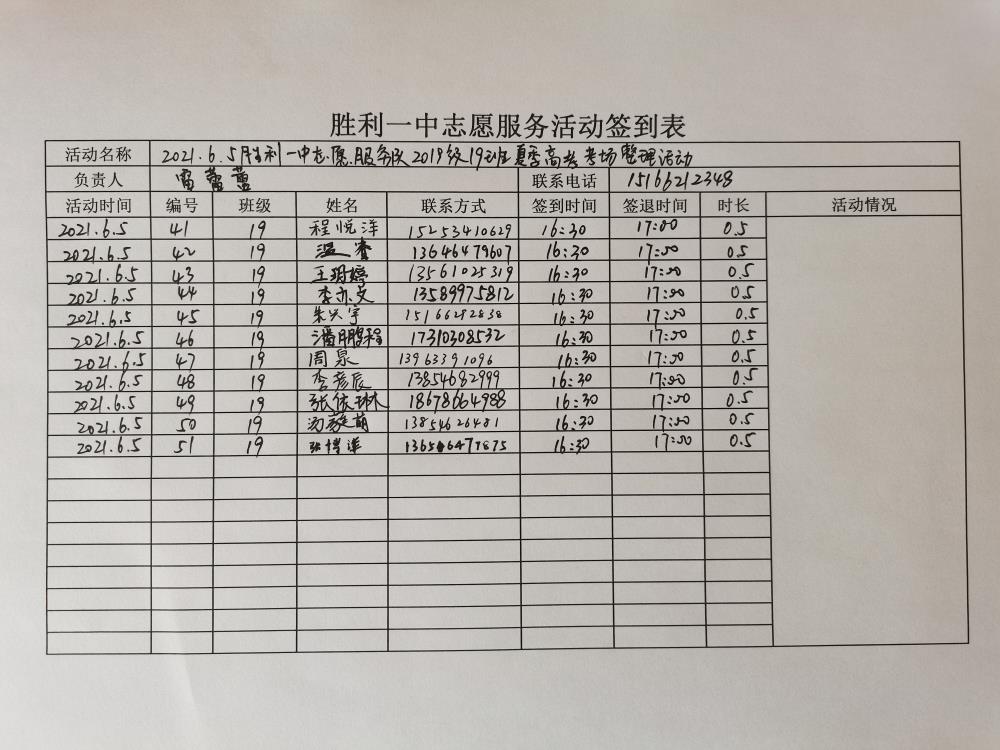 胜利一中志愿服务活动签到表
活动名称 2021.6.5胜利一中志愿服务队2019级19班夏季高考考场整理活动
负责人 雷蕾蕾 联系电话 15166212348
活动时间 编号 班级 姓名 联系方式 签到时间 签退时间 时长 活动情况
2021.6.5 41 19 程悦洋 15253410629 16:30 17:00 0.5
2021.6.5 42 19 温睿 13646479607 16:30 17:00 0.5
2021.6.5 43 19 王玥婷 13561025319 16:30 17:00 0.5
2021.6.5 44 19 李亦文 13589975812 16:30 17:00 0.5
2021.6.5 45 19 朱兴宇 15166282838 16:30 17:00 0.5
2021.6.5 46 19 潘鹏程 17310308532 16:30 17:00 0.5
2021.6.5 47 19 周泉 13963391096 16:30 17:00 0.5
2021.6.5 48 19 李彦辰 13854682999 16:30 17:00 0.5
2021.6.5 49 19 张依琳 18678664988 16:30 17:00 0.5
2021.6.5 50 19 13854626481 16:30 17:00 0.5
2021.6.5 51 19 张博洋 16:30 17:00 0.5